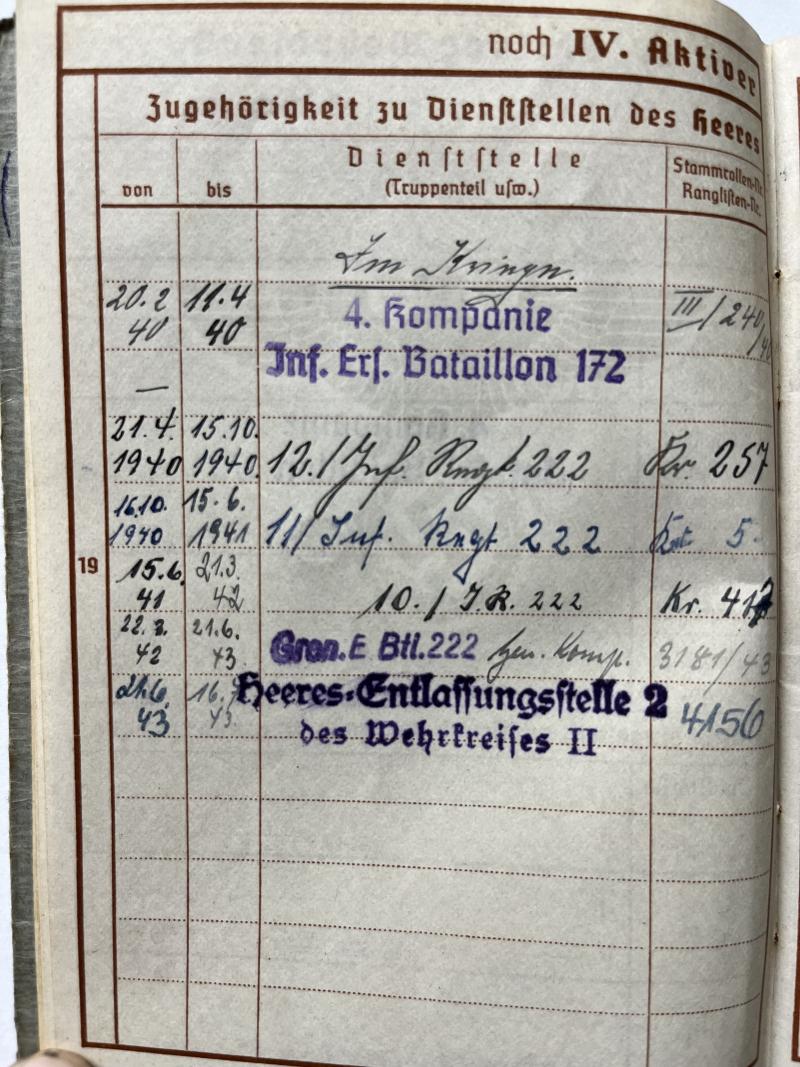 noch IV. Aktiver
Zugehörigkeit zu Dienststellen des Heeres
von bis Dienststelle (Truppenteil usw.) Stammrollen-Nr. Ranglisten-Nr.
Im Kriege.
20.2 40 11.4 40 4. Kompanie III/240/40
Inf. Ers. Bataillon 172
—
21.4. 1940 15.10. 1940 12./Inf. Regt. 222 Kr. 257
16.10. 1940 15.6. 1941 11/Inf. Regt 222 5
19
15.6. 41 21.3. 42 10./I.R. 222 Kr.
42 21.6. 43 Gren. E Btl. 222 Gen. Komp. 3181/43
21.6. 43 16. 43 Heeres-Entlassungsstelle 2 4156
des Wehrkreises II